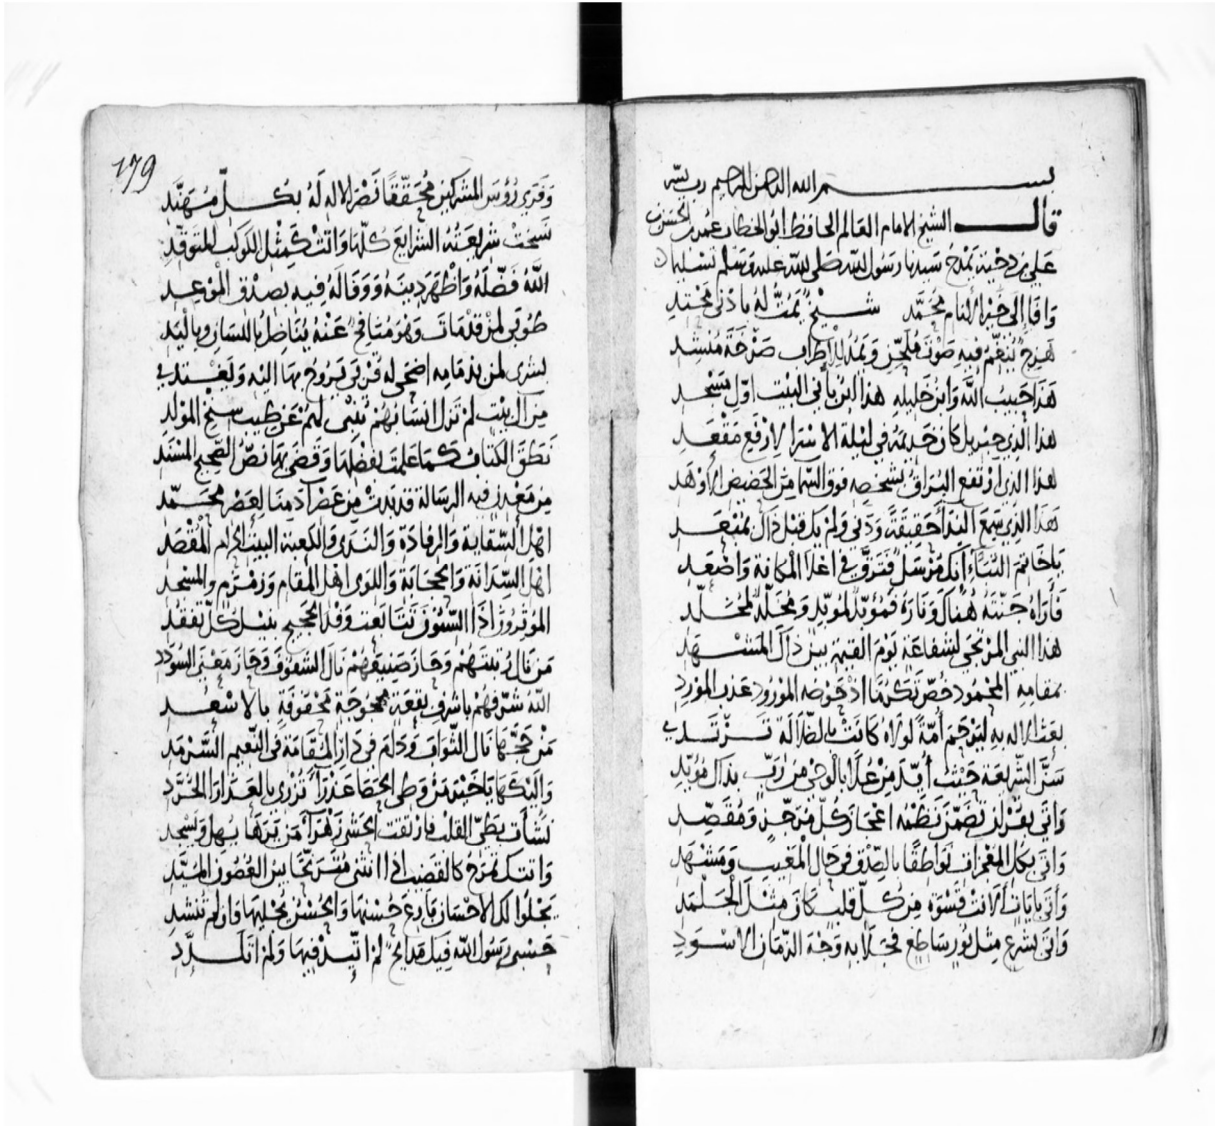 بسم الله الرحمن الرحيم رب يسر
قال الشيخ الامام العالم الحافظ ابو الخطاب عمر بن الحسن بن
علي بن دحية يمدح سيدنا رسول الله صلى الله عليه وسلم تسليما
وافا إلى خير الأنام محمد شيخ يمت له بادنى محتد
هزج ينغم فيه صوت ملحن ويمد للاطراف صرخة منشد
هذا حبيب الله وابن خليله هذا ابن بانى البيت اول مسجد
هذا الذي جبريل كان خديمه في ليلة الاسرا لارفع مقعد
هذا الذي ارتفع البراق بشخصه فوق السما من الحضيض الأوهد
هذا الذي سمع الندا حقيقة ودنى ولم يك قبل ذاك بمبعد
يا خاتم النباء انك مرسل فترق في اعلا المكانة واصعد
فأراه جنته هناك وناره فمؤبد لمؤبد ومخلد لمخلد
هذا النبي المرتجى لشفاعة يوم القيمة بين ذاك المشهد
بمقامه المحمود خص تكرما اذ حوضه المورود عذب المورد
بعث الاله به ليرحم أمة لولاه كانت بالضلالة ترتدي
سن الشريعة حيث أيد من علا بالوحي من رب بذاك مؤيد
واتى بقران تضمن نظمه اعجاز كل مرجز ومقصد
واتى بكل المعجزات نواطقا بالصدق في حال المغيب ومشهد
وأتى بايات ألانت قسوة من كل قلب كان مثل الجلمد
واتى بشرع مثل نور ساطع فجلا به وجه الزمان الاسود
179
وفرى رؤس المشركين محققا نصر الاله له بكل مهند
نسخت شريعته الشرايع كلها واتت كمثل الكوكب المتوقد
الله فضله وأظهر دينه ووفا له فيه بصدق الموعد
طوبى لمن قد مات وهو منافح عنه يناضل باللسان وباليد
بشرى لمن بذمامه اضحى له قربى يروح بها اليه ويغتدي
من آل بيت لم تزل انسابهم تنمى لهم عن طيب سنخ المولد
نطق الكتاب كما علمت بفضلها وقضى بها نص الصحيح المسند
من معدن فيه الرسالة قد بدت من عصر آدمنا لعصر محمد
اهل السقاية والرفادة والندى والكعبة البيت الحرام المقصد
اهل السدانة والحجابة واللوى اهل المقام وزمزم والمسجد
المؤثرون اذا السنون تتابعت وفد الحجيج بنيل كل تفقد
من نال رتبتهم وحاز صنيعهم نال الشفوف وحاز معنى السودد
الله شرفهم باشرف بقعة محجوجة محفوفة بالاسعد
من حجها نال الثواب ودام في دار المقامة في النعيم السرمد
واليكها يا خير من وطئ الحصا عذراً تزري بالعذارا الخرد
نشأت بطي القلب
وانتك تمرح كالقضيب اذا انثنى مترنحا بين الغصون الميد
يجلوا لك الاحسان بارع حسنها والحسن يجليها وان لم تنشد
حسبي رسول الله فيك مدايح لم اتئد فيها ولم اتلدد